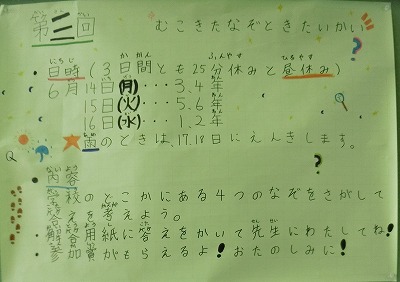 第三回 むこきたなぞときたいかい?
日時(3日間とも25分休みと昼休み)
6月14日(月)・・・3.4年
15日(火)・・・5.6年
16日(水)・・・1.2年
雨のときは、17.18日にえんきします。
内容
学校のどこかにある4つのなぞをさがして
答えを考えよう。
解答用紙に答えをかいて先生にわたしてね!
参加賞がもらえるよ!おたのしみに!